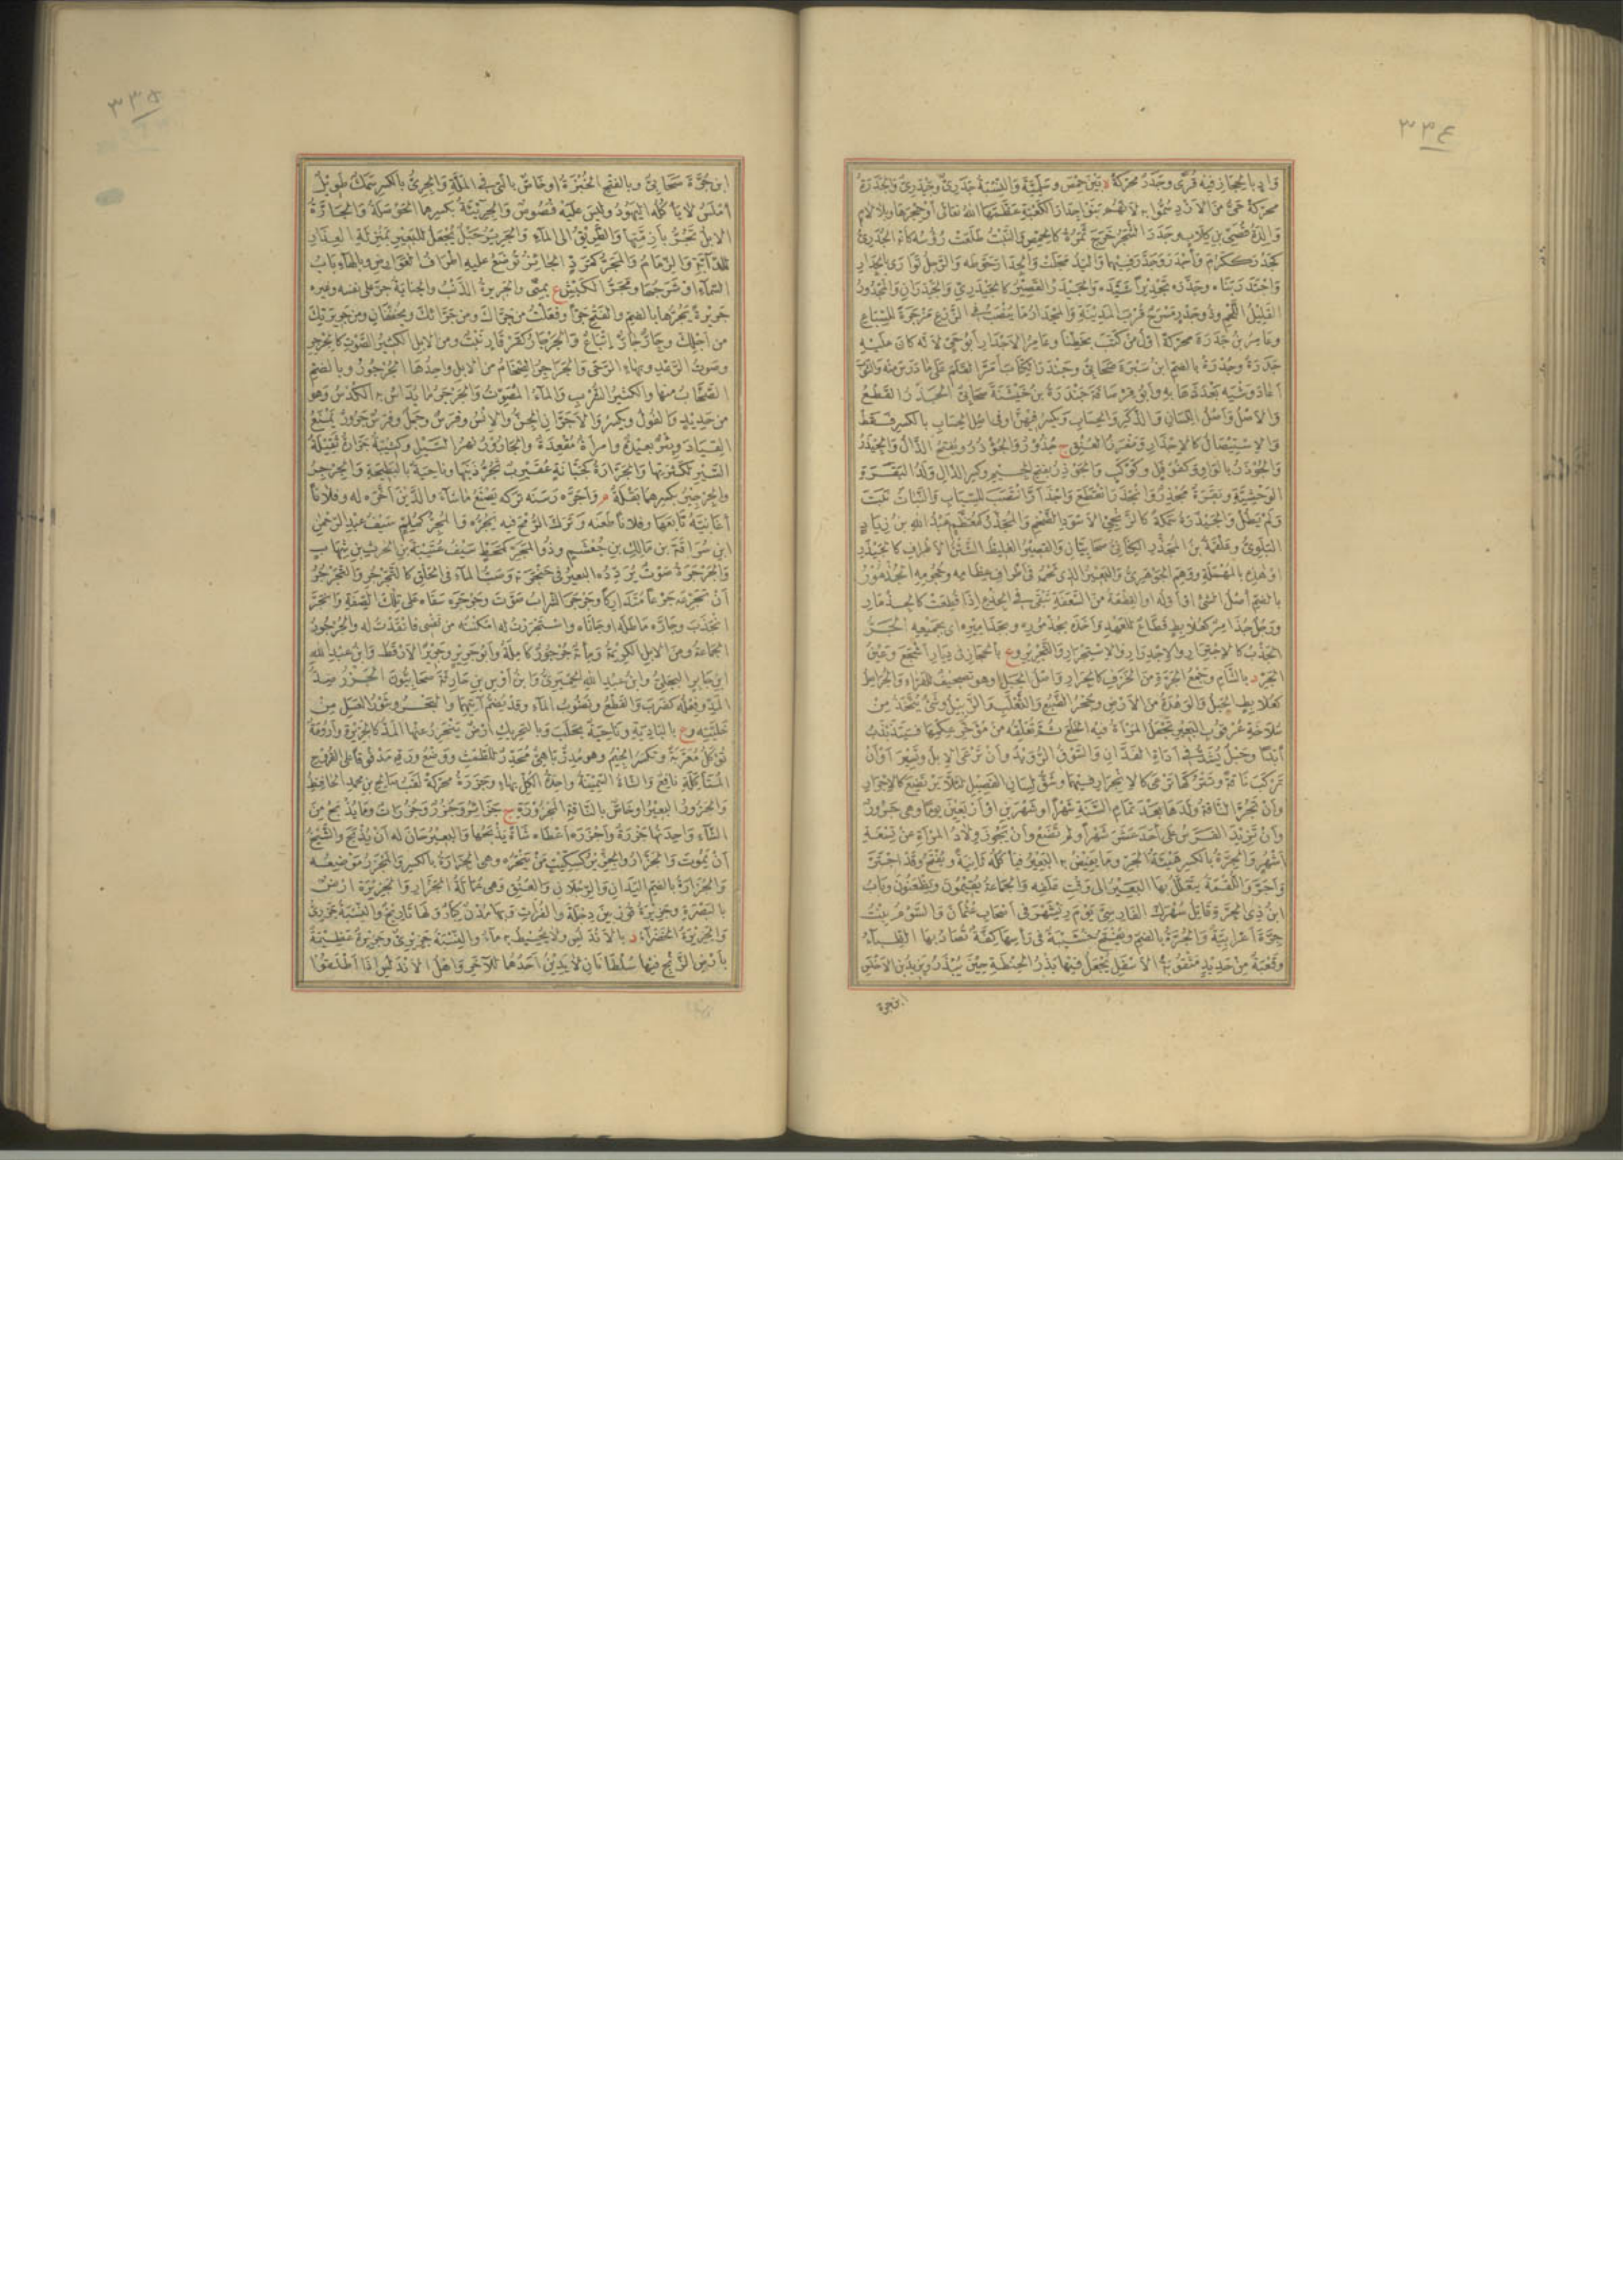 ٣٣٤
وادٍ بالحجاز فيه قُرًى وجَدَرُ محرّكةً ة بين حِمْصَ وسَلَمْيَةَ والنِّسْبَةُ جَدَرِيٌّ وجَيْدَرِيٌّ والجَدَرَةُ
محركةً حَيٌّ من الأزد سُمُّوا به لأنهم بَنَوْا جِدارَ الكعبةِ عَظَّمَها اللهُ تعالى أو حِجْرَها وبلا لامٍ
والدةُ قُصَيِّ بنِ كِلابٍ وجَدَرَ الشجرُ خَرَجَ ثَمَرُهُ كالحِمَّصِ والنَّبْتُ طَلَعَتْ رُؤُسُه كأنه الجُدَرِيُّ
كجَدُرَ ككَرُمَ وأجْدَرَ وجَدَّرَ فيهما واليدُ مَجَلَتْ والجِدارَ حَوَّطَه والرجلُ تَوارَى بالجِدارِ
واجْتَدَرَ بَناه وجَدَّرَه تَجْديراً شَيَّدَه والجَيْدَرُ القصيرُ كالجَيْدَرِيِّ والجَيْدَرانِ والمَجْدُورُ
القليلُ اللحمِ وذو جَدْرٍ مَسْرَحٌ قُرْبَ المدينةِ والمِجْدارُ ما يُنْصَبُ في الزرعِ مَزْجَرَةً للسِّباعِ
وعامرُ بنُ جَدَرَةَ محركةً أوّلُ من كَتَبَ بخَطِّنا وعامرُ الأجْدارِ أبو حَيٍّ لأنه كان عليه
جَدَرَةٌ وجُدْرَةُ بالضم ابنُ سَبْرَةَ صحابيٌّ وجَنْدَرَ الكتابَ أمَرَّ القلمَ على ما دَرَسَ منه والثوبَ
أعادَ وَشْيَه بعدَ ذَهابِه وأبو قِرْصافَةَ جَنْدَرَةُ بنُ خَيْشَنَةَ صحابيٌّ الجَذْرُ القَطْعُ
والأصلُ وأصلُ اللسانِ والذَّكَرِ والحِسابِ ويُكسرُ فيهن أو في أصلِ الحِسابِ بالكسرِ فقط
والاستيصالُ كالإجْذارِ ومَغْرِزُ العُنُقِ ج جُذُورٌ والجُؤْذُرُ وتُفْتَحُ الذالُ والجَيْذَرُ
والجُوذَرُ بالواو وكفُوفَلٍ وكَوْكَبٍ والجَوْذِرُ بفتح الجيم وكسر الذال ولدُ البقرةِ
الوحشيةِ وبقرةٌ مُجْذِرٌ وانْجَذَرَ انقطعَ واجْذَأَرَّ انتصبَ للسِّبابِ والنباتُ نَبَتَ
ولم يَطُلْ والجَيْذَرَةُ سَمَكَةٌ كالزَّنْجِيِّ الأسودِ الضخمِ والمُجَذَّرُ كمُعَظَّمٍ عبدُ اللهِ بنُ زِيادٍ
البَلَوِيُّ وعَلْقَمَةُ بنُ المُجَذَّرِ الكنانيُّ صحابيانِ والقصيرُ الغليظُ الشَّثْنُ الأطرافِ كالجَيْذَرِ
أو هذه بالمهملةِ ووَهِمَ الجوهريُّ والبعيرُ الذي لحمُه في أطرافِ عِظامِه وحُجُومِه الجُذْمُورُ
بالضم أصلُ الشيءِ أو أوّلُه أو القِطعةُ من السَّعَفَةِ تَبْقَى في الجِذْعِ إذا قُطِعَتْ كالجِذْمارِ
ورجلٌ جُذامِرٌ كعُلابِطٍ قَطَّاعٌ للعهدِ وأخَذَه بجُذْمُورِه وبجَذاميرِه أي بجميعِه الجَرُّ
الجَذْبُ كالاجْتِرارِ والاجْدِرارِ والاسْتِجْرارِ والتَّجْريرِ وع بالحجاز في ديارِ أشْجَعَ وعينُ
الجَرِّ د بالشام وجمعُ الجَرَّةِ من الخَزَفِ كالجِرارِ وأصلُ الجبلِ وهو تصحيفٌ للفَرّاءِ والجُرَاصِلُ
كعُلابِطٍ الجبلُ والوَهْدَةُ من الأرضِ وجُحْرُ الضَّبُعِ والثعلبِ والزَّبيلُ وشيءٌ يُتَّخَذُ من
سُلاخَةِ عُرْقُوبِ البعيرِ تجعلُ المرأةُ فيه الخَلْعَ ثم تُعَلِّقُه من مُؤَخَّرِ عِكْمِها فيَتَذَبْذَبُ
أبداً وحبلٌ يُشَدُّ في أداةِ الفَدَّانِ والسَّوْقُ الرُّوَيْدُ وأن تَرْعَى الإبلُ وتسيرَ أو أن
تركبَ ناقةً وتتركَها ترعى كالانْجِرارِ فيهما وشَقُّ لسانِ الفَصيلِ لئلا يَرْتَضِعَ كالإجْرارِ
وأن تَجُرَّ الناقةُ ولدَها بعدَ تمامِ السنةِ شهراً أو شهرينِ أو أربعينَ يوماً وهي جَرُورٌ
وأن تزيدَ الفرسُ على أحدَ عشرَ شهراً ولم تَضَعْ وأن يجوزَ وِلادُ المرأةِ عن تسعةِ
أشهرٍ والجِرَّةُ بالكسر هَيْئَةُ الجَرِّ وما يَفيضُ به البعيرُ فيأكلُه ثانيةً ويُفتحُ وقد اجْتَرَّ
وأجَرَّ واللُّقْمَةُ يَتَعَلَّلُ بها البعيرُ إلى وقتِ عَلَفِه والجماعةُ يُقيمونَ ويَظْعَنُونَ وبابُ
ابنُ ذي الجِرَّةِ قاتلُ سُهْرَكَ الفارسيِّ يومَ رِيشَهْرَ في أصحابِ عثمانَ والسَّوْمُ بنتُ
جِرَّةَ أعرابيةٌ والجُرَّةُ بالضم ويُفتحُ خُشَيْبَةٌ في رأسِها كِفَّةٌ تُصادُ بها الظِّباءُ
وقَعْبَةٌ من حديدٍ مثقوبةُ الأسفلِ يُجعلُ فيها بَذْرُ الحِنطةِ حينَ يُبْذَرُ ويزيدُ بنُ الأخنسِ
ابن جرة
٣٣٥
ابنِ جُرَّةَ صحابيٌّ وبالفتح الخُبْزَةُ أو خاصٌّ بالتي في المَلَّةِ والجِرِّيُّ بالكسر سمكٌ طويلٌ
أملسُ لا يأكلُه اليهودُ وليس عليه فُصُوصٌ والجِرِّيَّةُ بكسرهما الحَوْصَلَةُ والجارَّةُ
الإبلُ تُجَرُّ بأزِمَّتِها والطريقُ إلى الماءِ والجَريرُ حبلٌ يُجعلُ للبعيرِ بمنزلةِ العِذارِ
للدابَّةِ والزِّمامُ والمَجَرُّ كمَرَدٍّ الجائزُ تُوضَعُ عليه أطرافُ العَوارضِ وبالهاء بابُ
السماءِ أو شَرَجُها ومَجَرُّ الكَبْشِ ع بمِنًى والجَريرةُ الذنبُ والجنايةُ جَرَّ على نفسِه وغيرِه
جَريرةً يَجُرُّها بالضم والفتح جَرًّا وفعلتُ من جَرَّاكَ ومن جَرَّائكَ ويُخفَّفانِ ومن جَريرَتِكَ
من أجلِكَ وحارٌّ جارٌّ إتباعٌ والجَرْجارُ كقَرْقارٍ نبتٌ ومن الإبلِ الكثيرُ الصوتِ كالجِرْجِرِ
وصوتُ الرعدِ وبهاءٍ الرَّحَى والجَراجِرُ الضِّخامُ من الإبلِ واحدُها الجُرْجُورُ وبالضم
الصَّخَّابُ منها والكثيرُ الشُّرْبِ والماءُ المُصَوِّتُ والجَرْجَرُ ما يُداسُ به الكُدْسُ وهو
من حديدٍ والفولُ ويُكسرُ والأجَرَّانِ الجنُّ والإنسُ وفرسٌ وجملٌ وفرسٌ جَرُورٌ يمنعُ
القِيادَ وبئرٌ بعيدةٌ وامرأةٌ مُقْعَدَةٌ والجارُورُ نهرُ السَّيْلِ وكَتيبةٌ جَرَّارةٌ ثقيلةُ
السيرِ لكثرتِها والجَرَّارةُ كجَبَّانَةٍ عُقَيْرِبٌ تَجُرُّ ذنَبَها وناحيةٌ بالبَطيحةِ والجِرْجِرُ
والجِرْجيرُ بكسرهما بَقْلَةٌ م وأجَرَّه رَسَنَه تركَه يصنعُ ما شاءَ والدَّيْنَ أخَّرَه له وفلاناً
أغانِيَّه تابَعَها وفلاناً طعَنَه وتركَ الرمحَ فيه يَجُرُّه والمُجِرُّ كمُلِمٍّ سيفُ عبدِ الرحمنِ
ابنِ سُراقةَ بنِ مالكِ بنِ جُعْشُمٍ وذو المَجَرِّ كمَحَطٍّ سيفُ عُتَيْبَةَ بنِ الحارثِ بنِ شهابٍ
والجَرْجَرَةُ صوتٌ يُردِّدُه البعيرُ في حَنْجَرَتِه وصَبُّ الماءِ في الحلقِ كالتَّجَرْجُرِ والتَّجَرْجُرُ
أن تَجْرَعَه جَرْعاً متداركاً وجَرْجَرَ الشرابُ صوَّتَ وجَرْجَرَه سقاه على تلك الصفةِ وانْجَرَّ
انجذبَ وجارَّه ماطلَه أو حاباه واسْتَجْرَرْتُ له أمكنتُه من نفسي فانقدتُ له والجُرْجُورُ
الجماعةُ ومن الإبلِ الكريمةُ ومائةٌ جُرْجُورٌ كاملةٌ وأبو جَريرٍ وجَريرٌ الأرقطُ وابنُ عبدِ اللهِ
ابنِ جابرٍ البجليُّ وابنُ عبدِ اللهِ الحِمْيَريُّ وابنُ أوسِ بنِ حارثةَ صحابيُّونَ الجَزْرُ ضدُّ
المَدِّ وفعلُه كضَرَبَ والقطعُ ونُضُوبُ الماءِ وقد يُضَمُّ آتيهما والبحرُ وشَوْرُ العسلِ من
خليَّتِه وع بالباديةِ وناحيةٌ بحلبَ وبالتحريكِ أرضٌ يَنْجَزِرُ عنها المدُّ كالجَزيرةِ وأُرُومَةٌ
تُؤكلُ مُعَرَّبةٌ وتُكسرُ الجيمُ وهو مُدِرٌّ باهيٌّ مُحَدِّرٌ للطَّمْثِ ووضعُ ورقِه مدقوقاً على القُرُوحِ
المُتأكِّلةِ نافعٌ والشاءُ السمينةُ واحدةُ الكلِّ بهاءٍ وجَزَرَةُ محركةً لقبُ صالحِ بنِ محمدٍ الحافظِ
والجَزُورُ البعيرُ أو خاصٌّ بالناقةِ المجزورةِ ج جَزائرُ وجُزُرٌ وجُزُراتٌ وما يُذبحُ من
الشاءِ واحدتُها جَزْرةٌ وأجْزَرَه أعطاه شاةً يذبحُها والبعيرُ حانَ له أن يُذبحَ والشيخُ
أن يموتَ والجَزَّارُ والجِزِّيرُ كسِكِّيتٍ من يَنْحَرُه وهي الجِزارةُ بالكسرِ والمَجْزَرُ موضعُه
والجُزارةُ بالضم اليدانِ والرجلانِ والعنقُ وهي عُمالَةُ الجَزَّارِ والجَزيرةُ أرضٌ
بالبصرةِ وجزيرةُ قُورَ بينَ دِجْلةَ والفُراتِ وبها مُدُنٌ كبارٌ ولها تاريخٌ والنسبةُ جَزَريٌّ
والجزيرةُ الخضراءُ د بالأندلسِ ولا يُحيطُ به ماءٌ والنسبةُ جَزيريٌّ وجزيرةٌ عظيمةٌ
بأرضِ الزَّنْجِ فيها سُلطانانِ لا يَدينُ أحدُهما للآخرِ وأهلُ الأندلسِ إذا أطلقوا